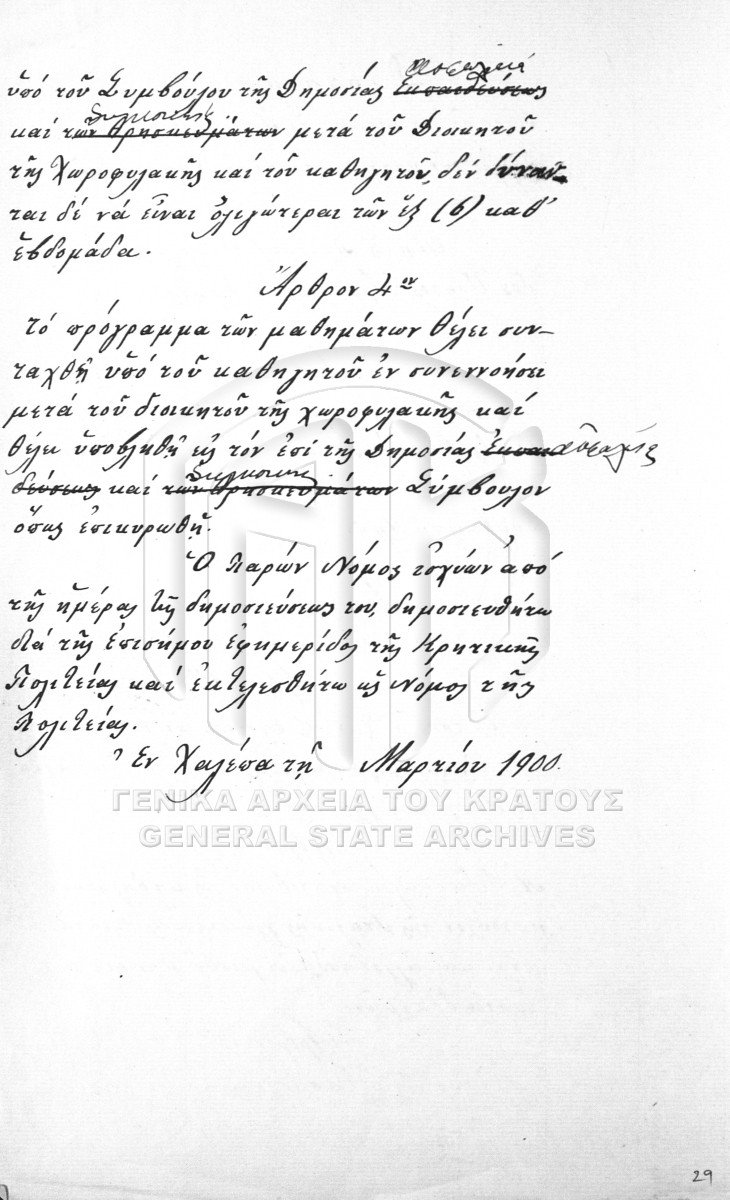 ὑπό τοῦ Συμβούλου τῆς Δημοσίας Ἐκπαιδεύσεως
Συγκοινωνίας
καί τῶν θρησκευμάτων μετά τοῦ Διοικητοῦ
τῆς Χωροφυλακῆς καί τοῦ καθηγητοῦ, δέν δύναν-
ται δέ νά εἶναι ὀλιγώτεραι τῶν ἕξ (6) καθ'
ἑβδομάδα.
Ἄρθρον 4ον
Τό πρόγραμμα τῶν μαθημάτων θέλει συν-
ταχθῇ ὑπό τοῦ καθηγητοῦ ἐν συνεννοήσει
μετά τοῦ διοικητοῦ τῆς χωροφυλακῆς καί
θέλει ὑποβληθῇ εἰς τόν ἐπί τῆς Δημοσίας Ἐκπαι ἀσφαλείας
Συγκοινωνίας
δεύσεως καί τῶν θρησκευμάτων Σύμβουλον
ὅπως ἐπικυρωθῇ.
Ὁ παρών Νόμος ἰσχύων ἀπό
τῆς ἡμέρας τῆς δημοσιεύσεώς του, δημοσιευθήτω
διά τῆς ἐπισήμου ἐφημερίδος τῆς Κρητικῆς
Πολιτείας καί ἐκτελεσθήτω ὡς Νόμος τῆς
Πολιτείας.
Ἐν Χαλέπᾳ τῇ Μαρτίου 1900.
ΓΕΝΙΚΑ ΑΡΧΕΙΑ ΤΟΥ ΚΡΑΤΟΥΣ
GENERAL STATE ARCHIVES
29